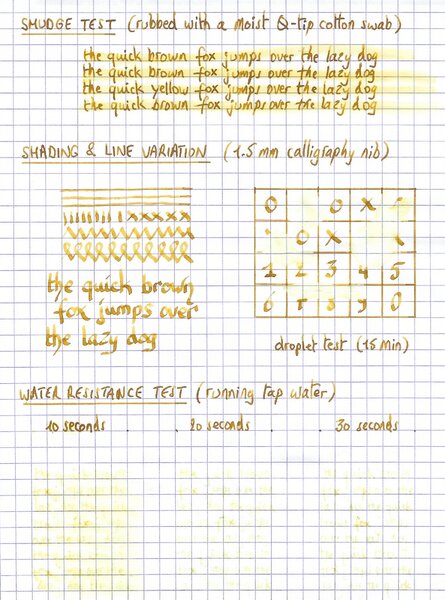 SMUDGE TEST (rubbed with a moist Q-tip cotton swab)
the quick brown fox jumps over the lazy dog
the quick brown fox jumps over the lazy dog
the quick yellow fox jumps over the lazy dog
the quick brown fox jumps over the lazy dog
SHADING & LINE VARIATION (1.5 mm calligraphy nib)
O O X
O X X
1 2 3 4 5
6 8 9 0
the quick brown
fox jumps over
the lazy dog
droplet test (15 min)
WATER RESISTANCE TEST (running tap water)
10 seconds 20 seconds 30 seconds
fox fox